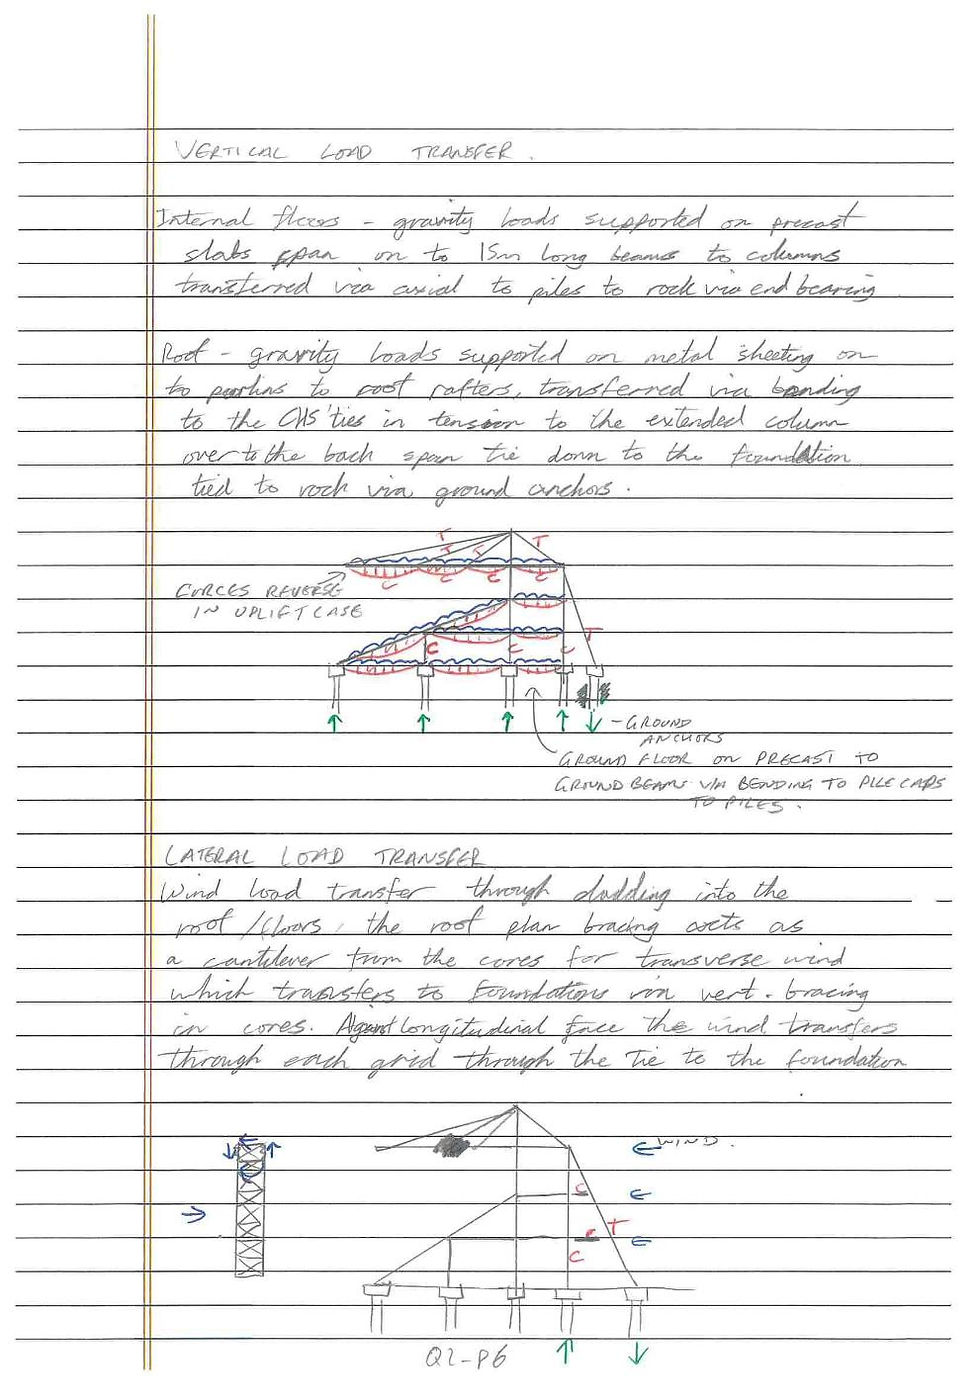 VERTICAL LOAD TRANSFER.
Internal floors - gravity loads supported on precast
slabs span on to 15m long beams to columns
transferred via axial to piles to rock via end bearing
Roof - gravity loads supported on metal sheeting on
to purlins to roof rafters, transferred via bending
to the CHS ties in tension to the extended column
over to the back span tie down to the foundation
tied to rock via ground anchors.
T
T
T
T
C
C
C
C
FORCES REVERSE
IN UPLIFT CASE
T
C
C
C
- GROUND
ANCHORS
GROUND FLOOR ON PRECAST TO
GROUND BEAMS VIA BENDING TO PILE CAPS
TO PILES.
LATERAL LOAD TRANSFER
Wind load transfer through cladding into the
roof/floors, the roof plan bracing acts as
a cantilever from the cores for transverse wind
which transfers to foundations via vert. bracing
in cores. Against longitudinal face the wind transfers
through each grid through the tie to the foundation
WIND.
C
T
C
C
Q2-P6